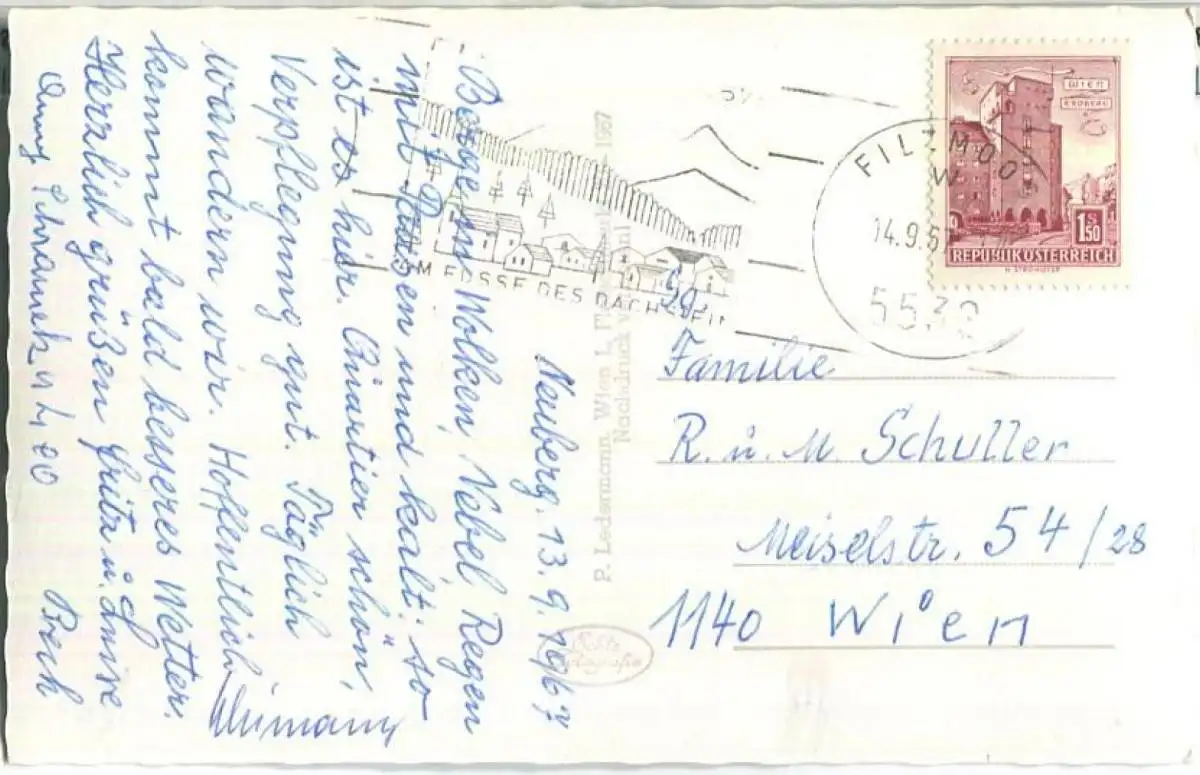 Neuberg, 13. 9. 1967
Berge in Wolken, Nebel, Regen
mit Pausen und kalt: so
ist es hier. Quartier schön,
Verpflegung gut. Täglich
wandern wir. Hoffentlich
kommt bald besseres Wetter.
Herzlich grüßen Fritz u. Luise
FILZMOOS
14.9.67
5532
AM FUSSE DES DACHSTEIN
WIEN
ERDBERG
1 S 50
REPUBLIK ÖSTERREICH
P. Ledermann, Wien I,
1967
Nachdruck
Familie
R. u. M. Schuller
Meiselstr. 54/28
1140 Wien